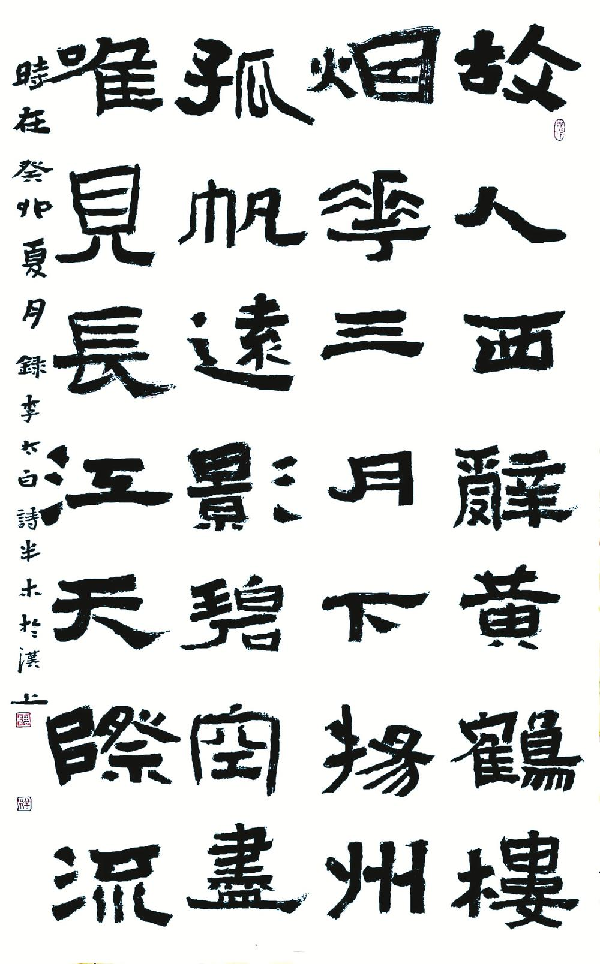 故人西辭黄鶴樓
烟花三月下揚州
孤帆遠影碧空盡
唯見長江天際流
時在癸卯夏月録李太白詩半木於漢上